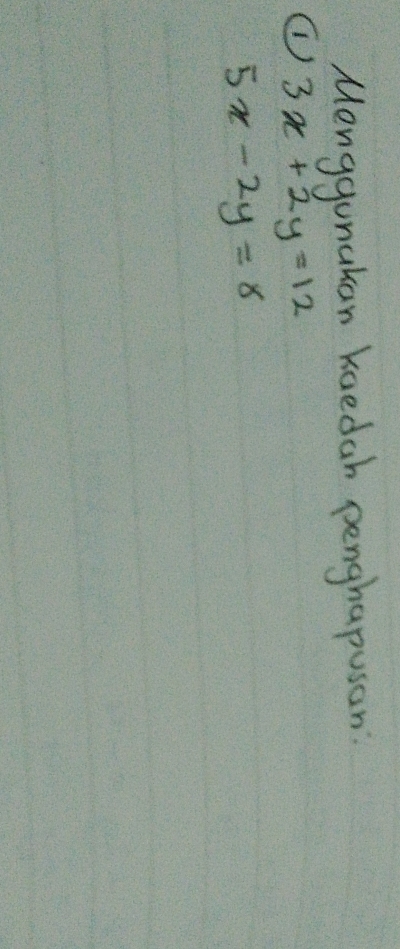 Menggunakan kaedah penghapusan:
① 3x + 2y = 12
5x - 2y = 8